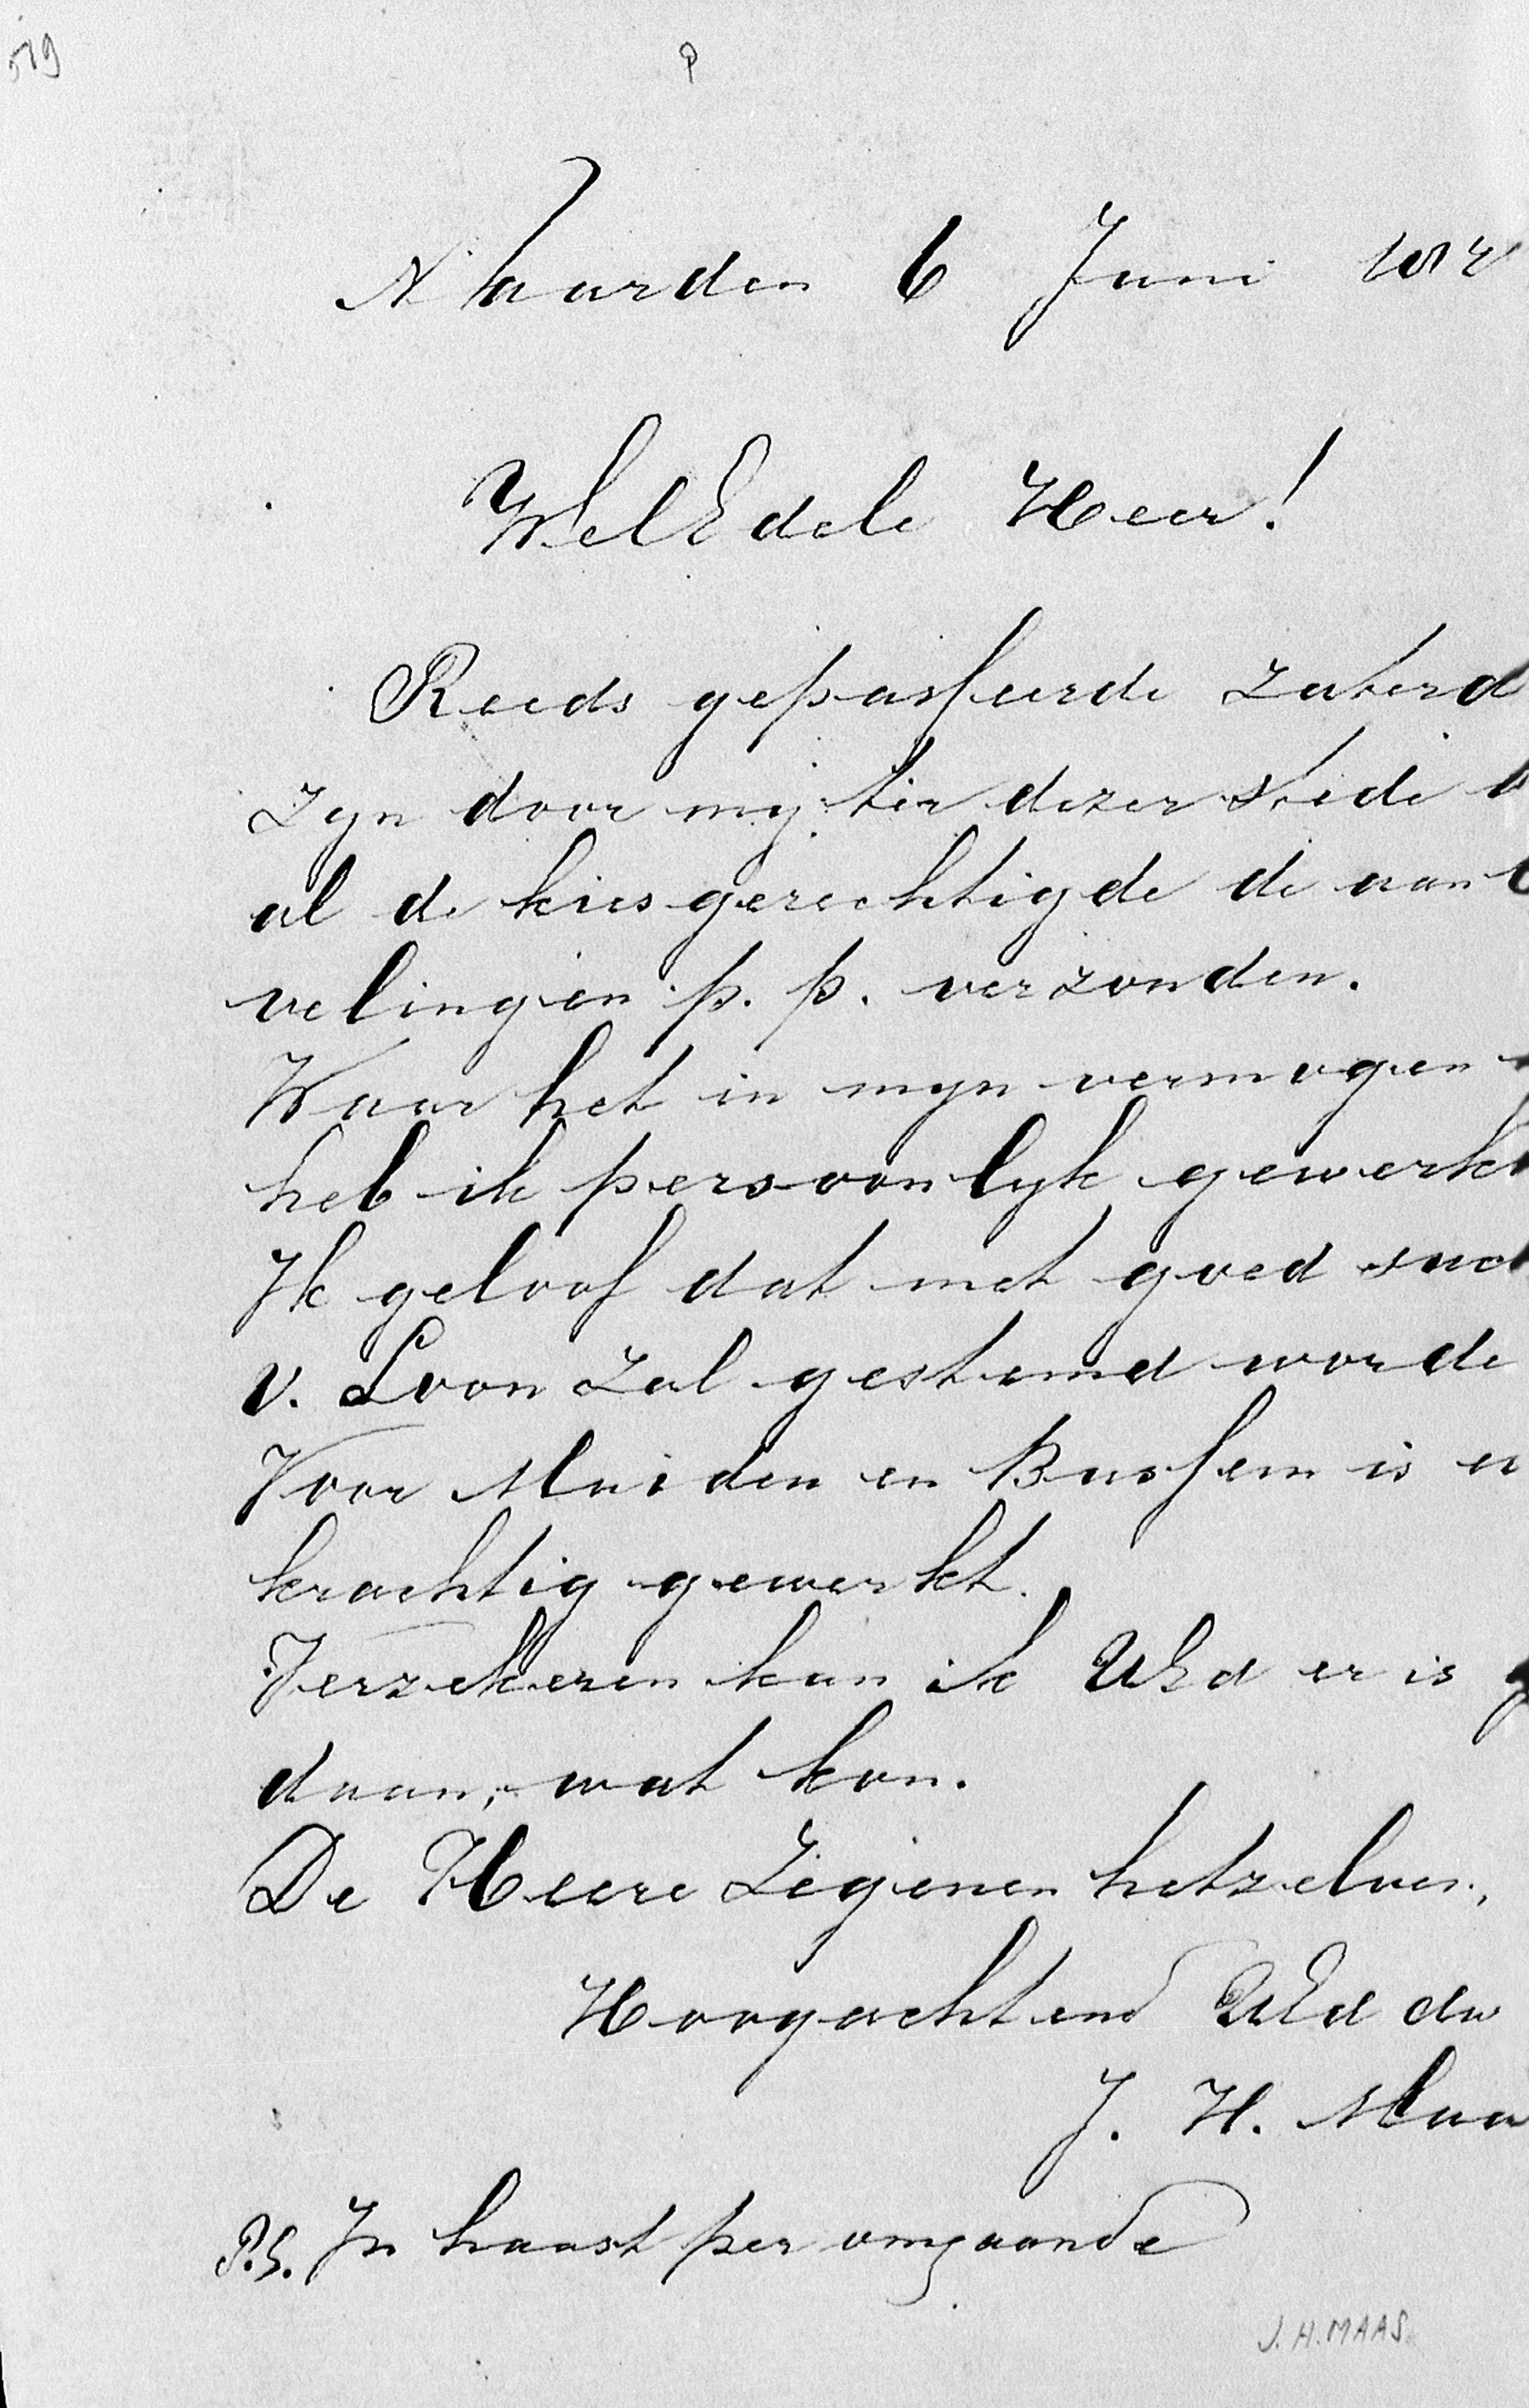 519
Naarden 6 Juni
WelEdele Heer!
Reeds gepasseerde Zaterd
Zyn door mij ter dezer Stede
al de kiesgerechtigde de aanb
velingen p. p. verzonden.
Waar het in myn vermogen
heb ik persoonlyk gewerkt
Ik geloof dat met goed suc
v. Loon Zal gestemd worde
Voor Muiden en Bussem is er
krachtig gewerkt.
Verzekeren kan ik UEd er is g
daan, wat kon.
De Heere Zegenen hetzelven,
Hoogachtend UEd dw
J. H. Maa
P.S. In haast per omgaande
J. H. MAAS